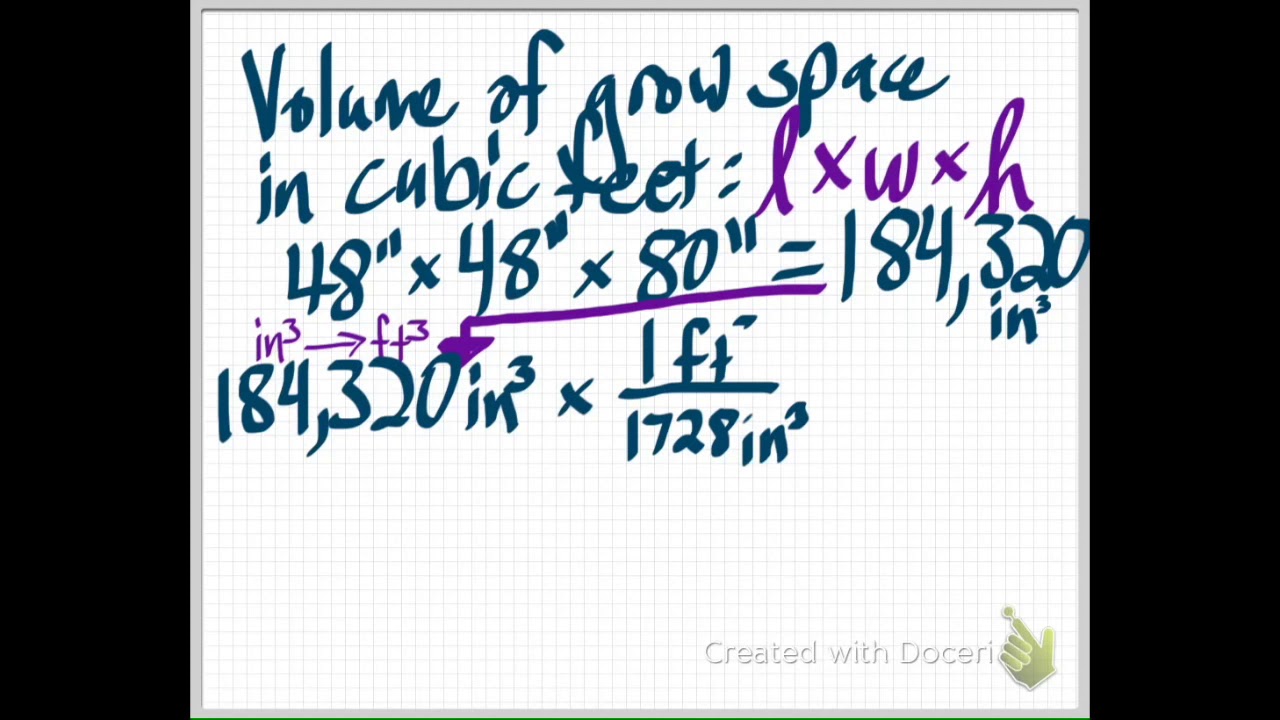 Volume of grow space
in cubic feet: l × w × h
48" × 48" × 80" = 184,320
in³
in³ → ft³
1 ft
184,320 in³ ×
1728 in³
Created with Doceri